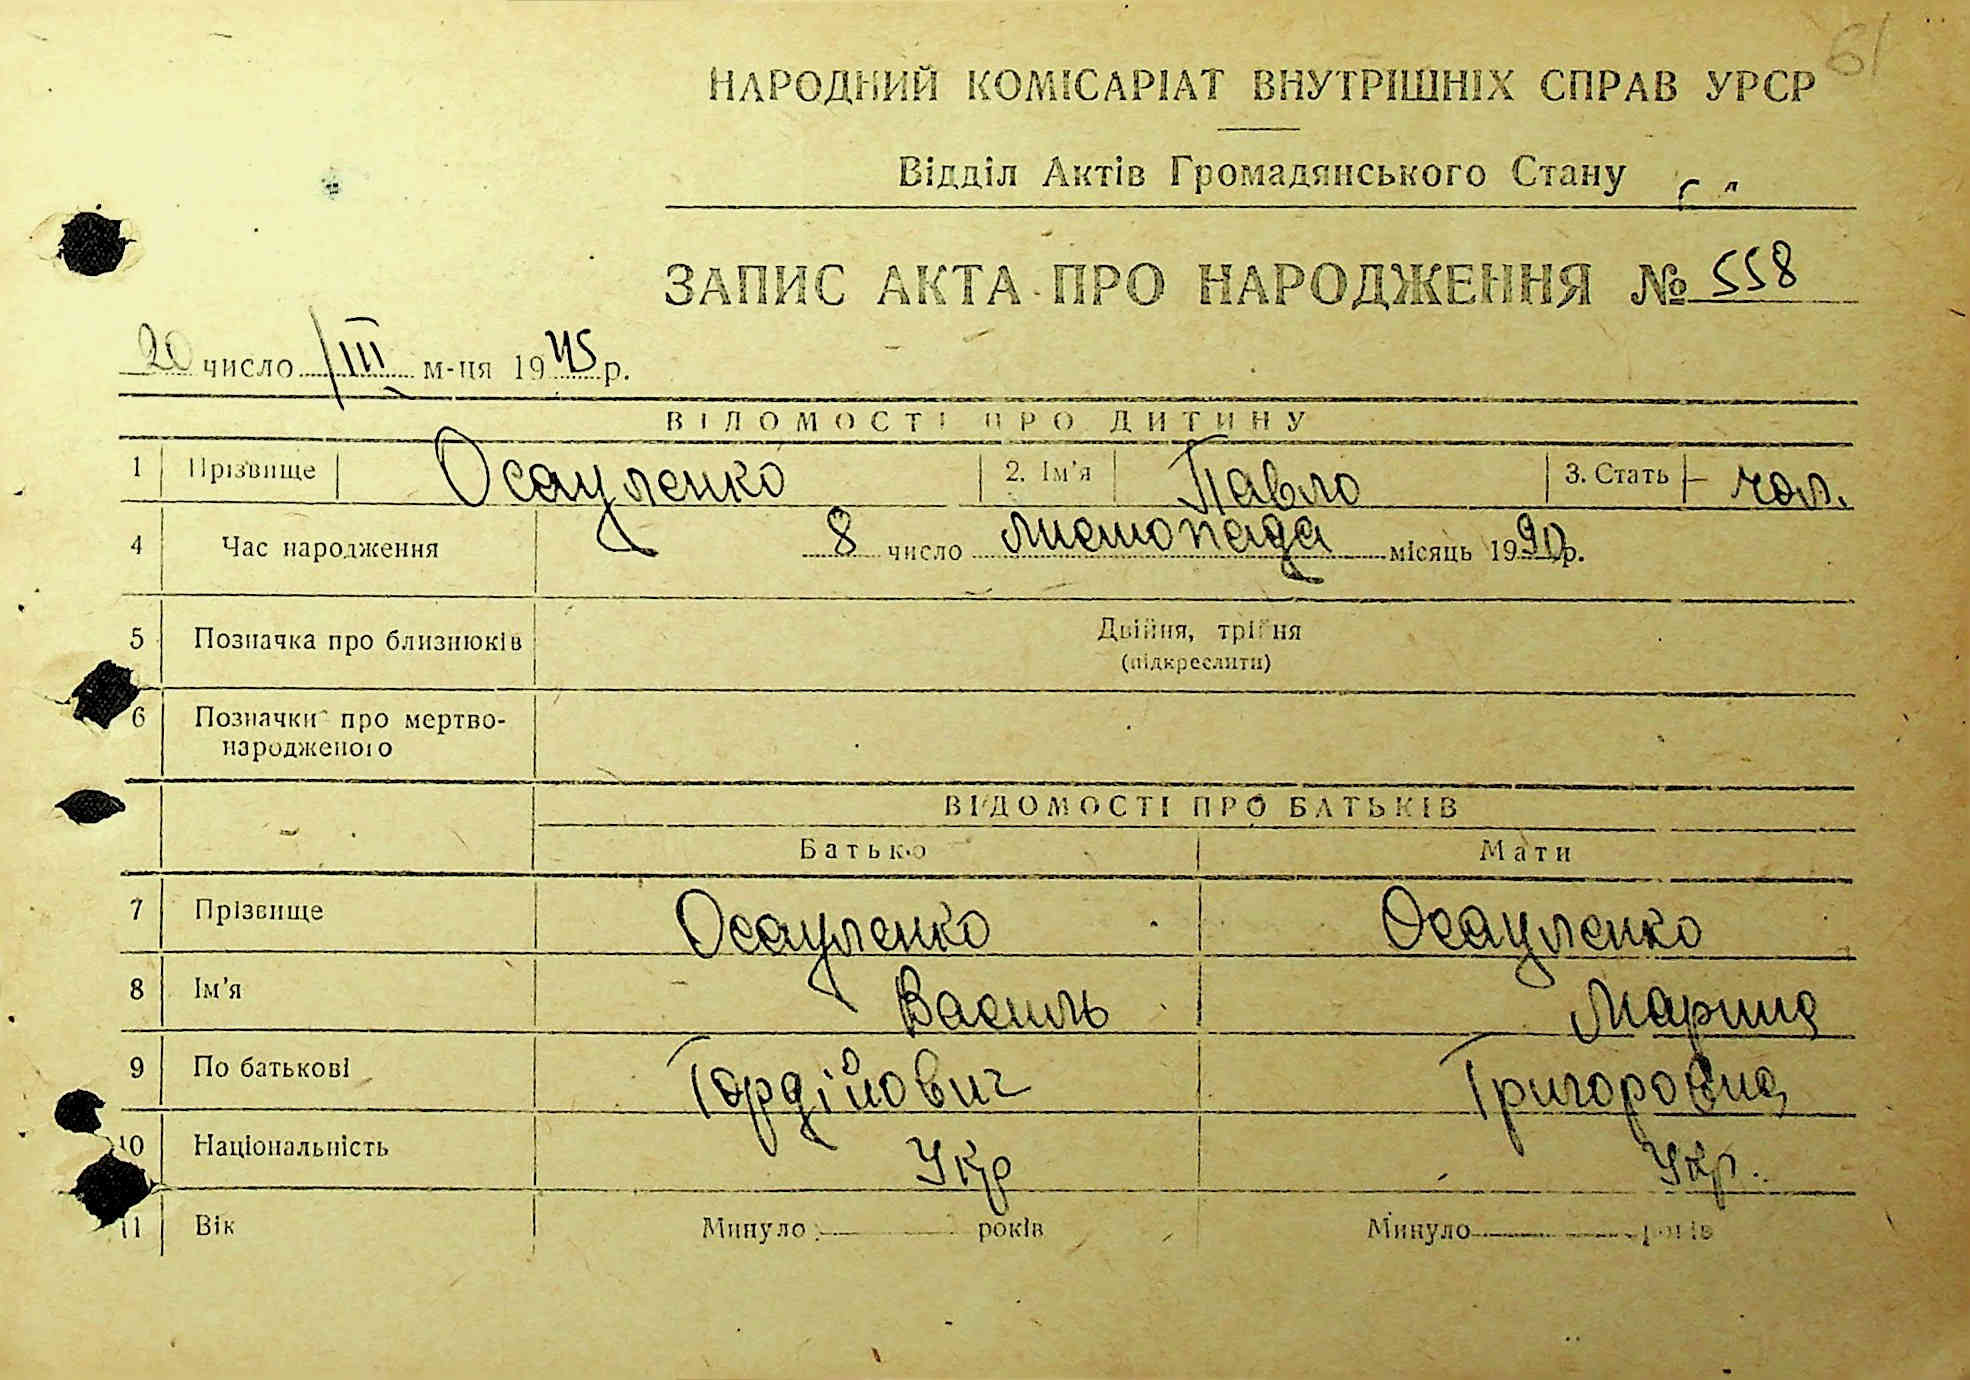 61
НАРОДНИЙ КОМІСАРІАТ ВНУТРІШНІХ СПРАВ УРСР
Відділ Актів Громадянського Стану
ЗАПИС АКТА ПРО НАРОДЖЕННЯ № 558
20 число III м-ця 1945 р.
ВІДОМОСТІ ПРО ДИТИНУ
1 Прізвище Осауленко 2. Ім'я Павло 3. Стать чол.
4 Час народження 8 число листопада місяць 19 р.
5 Позначка про близнюків Двійня, трійня
(підкреслити)
6 Позначки про мертво-
народженого
ВІДОМОСТІ ПРО БАТЬКІВ
Батько Мати
7 Прізвище Осауленко Осауленко
8 Ім'я Василь Марина
9 По батькові Гордійович Григоровна
10 Національність Укр Укр.
11 Вік Минуло років Минуло років